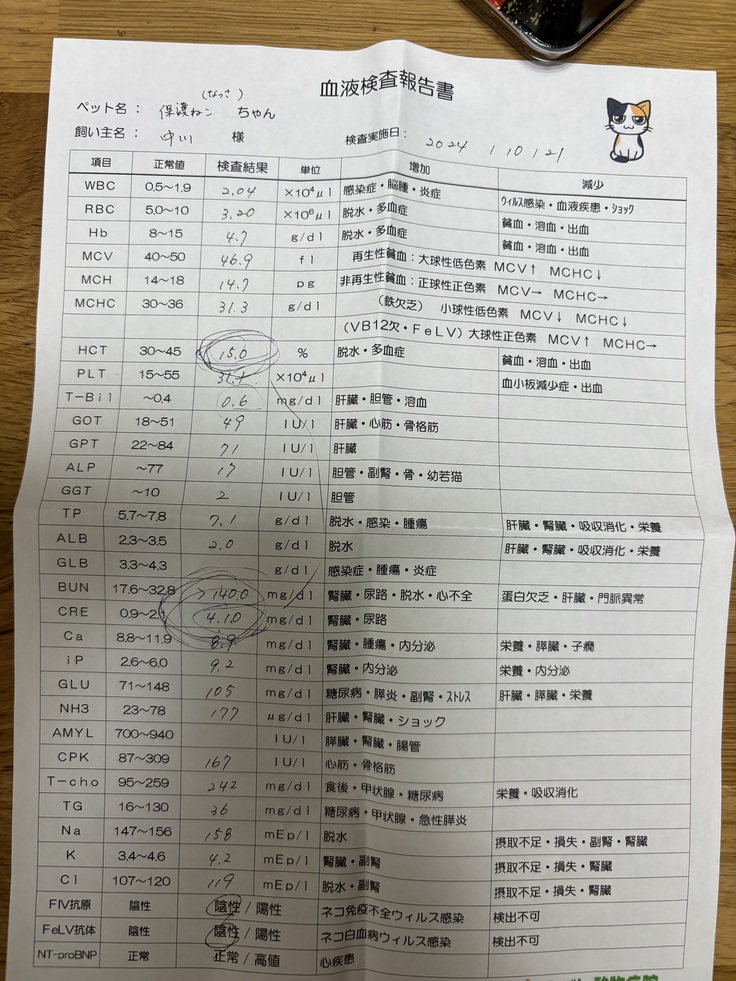 血液検査報告書
(なっさ)
ペット名： 保護ねこ ちゃん
飼い主名： 中川 様
検査実施日： 2024 / 10 / 21
項目 正常値 検査結果 単位 増加 減少
WBC 0.5～1.9 2.04 ×10⁴μl 感染症・脳腫・炎症 ウィルス感染・血液疾患・ショック
RBC 5.0～10 3.20 ×10⁶μl 脱水・多血症 貧血・溶血・出血
Hb 8～15 4.7 g/dl 脱水・多血症 貧血・溶血・出血
MCV 40～50 46.9 fl 再生性貧血：大球性低色素 MCV↑ MCHC↓
MCH 14～18 14.7 pg 非再生性貧血：正球性正色素 MCV→ MCHC→
MCHC 30～36 31.3 g/dl （鉄欠乏） 小球性低色素 MCV↓ MCHC↓
（VB12欠・FeLV）大球性正色素 MCV↑ MCHC→
HCT 30～45 15.0 % 脱水・多血症 貧血・溶血・出血
PLT 15～55 31.1 ×10⁴μl 血小板減少症・出血
T-Bil ～0.4 0.6 mg/dl 肝臓・胆管・溶血
GOT 18～51 49 IU/l 肝臓・心筋・骨格筋
GPT 22～84 71 IU/l 肝臓
ALP ～77 17 IU/l 胆管・副腎・骨・幼若猫
GGT ～10 2 IU/l 胆管
TP 5.7～7.8 7.1 g/dl 脱水・感染・腫瘍 肝臓・腎臓・吸収消化・栄養
ALB 2.3～3.5 2.0 g/dl 脱水 肝臓・腎臓・吸収消化・栄養
GLB 3.3～4.3 g/dl 感染症・腫瘍・炎症
BUN 17.6～32.8 >140.0 mg/dl 腎臓・尿路・脱水・心不全 蛋白欠乏・肝臓・門脈異常
CRE 0.9～2.1 4.10 mg/dl 腎臓・尿路
Ca 8.8～11.9 8.9 mg/dl 腎臓・腫瘍・内分泌 栄養・膵臓・子癇
iP 2.6～6.0 9.2 mg/dl 腎臓・内分泌 栄養・内分泌
GLU 71～148 105 mg/dl 糖尿病・膵炎・副腎・ストレス 肝臓・膵臓・栄養
NH3 23～78 177 μg/dl 肝臓・腎臓・ショック
AMYL 700～940 IU/l 膵臓・腎臓・腸管
CPK 87～309 167 IU/l 心筋・骨格筋
T-cho 95～259 242 mg/dl 食後・甲状腺・糖尿病 栄養・吸収消化
TG 16～130 36 mg/dl 糖尿病・甲状腺・急性膵炎
Na 147～156 158 mEp/l 脱水 摂取不足・損失・副腎・腎臓
K 3.4～4.6 4.2 mEp/l 腎臓・副腎 摂取不足・損失・腎臓
Cl 107～120 119 mEp/l 脱水・副腎 摂取不足・損失・腎臓
FIV抗原 陰性 陰性 / 陽性 ネコ免疫不全ウィルス感染 検出不可
FeLV抗体 陰性 陰性 / 陽性 ネコ白血病ウィルス感染 検出不可
NT-proBNP 正常 正常 / 高値 心疾患